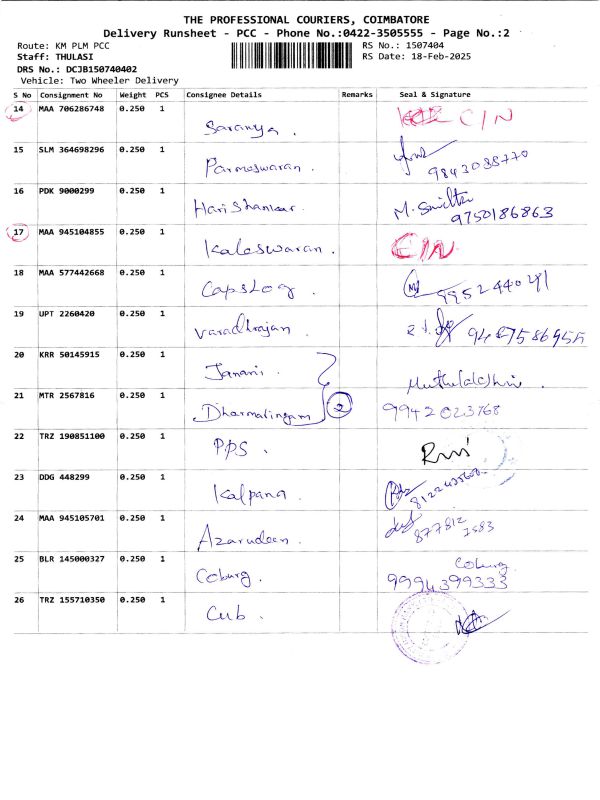 THE PROFESSIONAL COURIERS, COIMBATORE
Delivery Runsheet - PCC - Phone No.:0422-3505555 - Page No.:2
Route: KM PLM PCC RS No.: 1507404
Staff: THULASI RS Date: 18-Feb-2025
DRS No.: DCJB150740402
Vehicle: Two Wheeler Delivery
S No Consignment No Weight PCS Consignee Details Remarks Seal & Signature
14 MAA 706286748 0.250 1 Saranya. C/N
15 SLM 364698296 0.250 1 Parmeswaran. 9843038770
16 PDK 9000299 0.250 1 Hari Shankar. M. Smitha 9750186863
17 MAA 945104855 0.250 1 Kaleswaran. C/N
18 MAA 577442668 0.250 1 CapsLog. 9952440291
19 UPT 2260420 0.250 1 Varadhrajan
20 KRR 50145915 0.250 1 Janani. Muthulakshmi.
21 MTR 2567816 0.250 1 Dharmalingam 2 9942023768
22 TRZ 190851100 0.250 1 PPS.
23 DDG 448299 0.250 1 Kalpana.
24 MAA 945105701 0.250 1 Azarudeen.
25 BLR 145000327 0.250 1 Coburg. Coburg.
9994399333
26 TRZ 155710350 0.250 1 Cub.